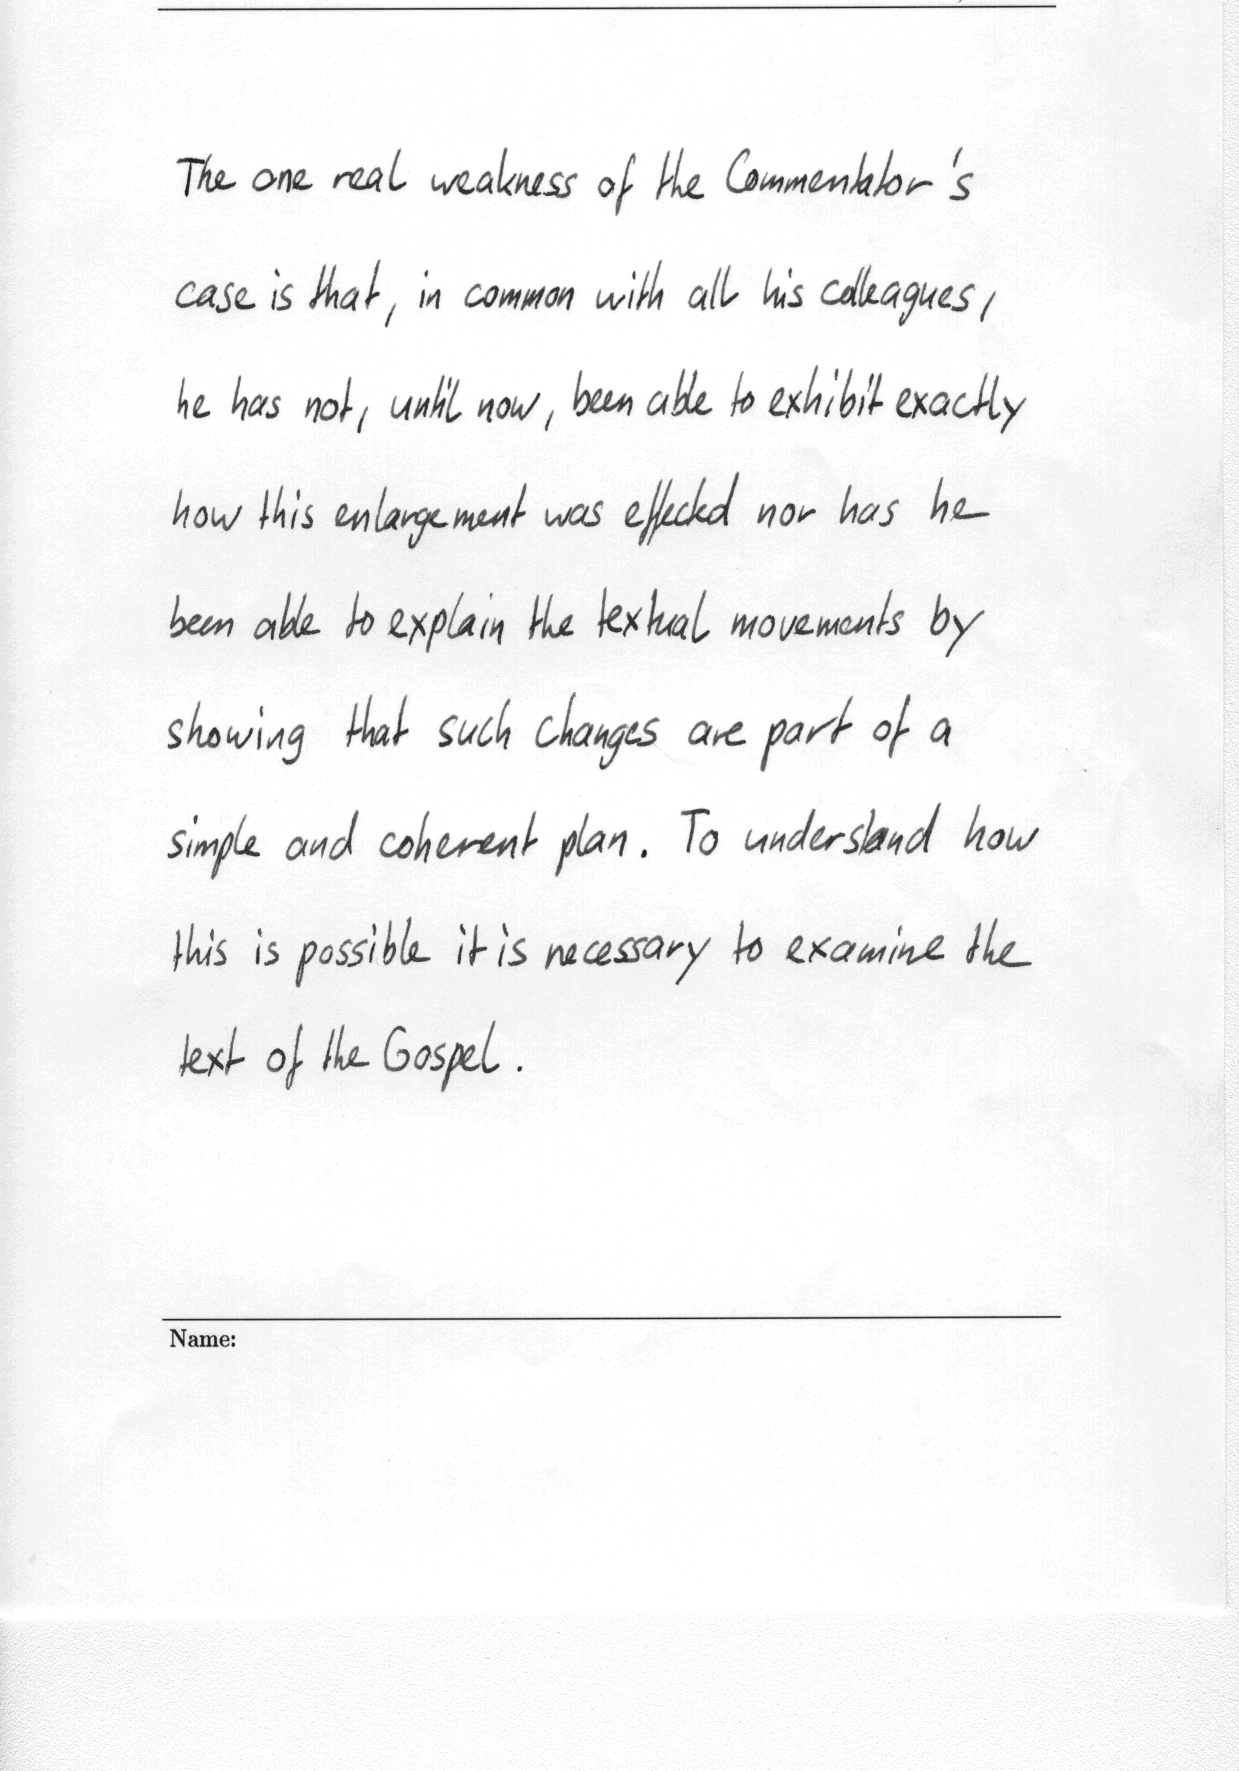 The one real weakness of the Commentator's
case is that, in common with all his colleagues,
he has not, until now, been able to exhibit exactly
how this enlargement was effected nor has he
been able to explain the textual movements by
showing that such changes are part of a
simple and coherent plan. To understand how
this is possible it is necessary to examine the
text of the Gospel.
Name: